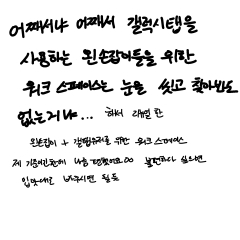 어째서냐 어째서 갤럭시탭을
사용하는 왼손잡이들을 위한
워크 스페이스는 눈을 씻고 찾아봐도
없는거냐... 해서 리뉴얼 한
왼손잡이 + 갤탭유저를 위한 워크 스페이스
제 기준이긴한데 나름 편했어요 ㅇㅇ 불편하다 싶으면
입맛대로 바꾸시면 될듯